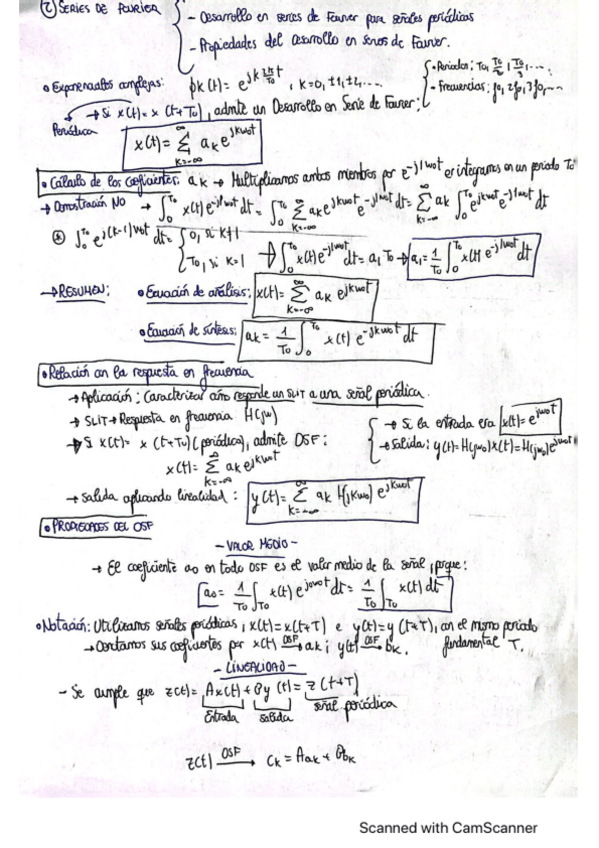 ② SERIES DE FOURIER
- Desarrollo en series de Fourier para señales periódicas
- Propiedades del desarrollo en series de Fourier.
• Exponenciales complejas: ϕk(t) = e^{jk 2π/T0 t}, k=0, ±1, ±2, ...
• Periodos: T0, T0/2, T0/3, ...
• Frecuencias: f0, 2f0, 3f0, ...
→ Si x(t) = x(t+T0), admite un Desarrollo en Serie de Fourier:
Periódica
x(t) = ∑_{k=-∞}^{∞} ak e^{jkω0t}
• Cálculo de los coeficientes: ak → Multiplicamos ambos miembros por e^{-jlω0t} e integramos en un periodo T0
→ Demostración NO → ∫_0^{T0} x(t) e^{-jlω0t} dt = ∫_0^{T0} ∑_{k=-∞}^{∞} ak e^{jkω0t} e^{-jlω0t} dt = ∑_{k=-∞}^{∞} ak ∫_0^{T0} e^{jkω0t} e^{-jlω0t} dt
⊛ ∫_0^{T0} e^{j(k-l)ω0t} dt = { 0, si k≠l ; T0, si k=l → ∫_0^{T0} x(t) e^{-jlω0t} dt = al T0 → al = 1/T0 ∫_0^{T0} x(t) e^{-jlω0t} dt
→ RESUMEN: • Ecuación de análisis: x(t) = ∑_{k=-∞}^{∞} ak e^{jkω0t}
• Ecuación de síntesis: ak = 1/T0 ∫_0^{T0} x(t) e^{-jkω0t} dt
• Relación con la respuesta en frecuencia
→ Aplicación: Caracterizar cómo responde un SLIT a una señal periódica.
→ SLIT → Respuesta en frecuencia H(jω)
→ Si la entrada era x(t) = e^{jω0t}
→ Si x(t) = x(t+T0) (periódica), admite DSF:
→ Salida: y(t) = H(jω0) x(t) = H(jω0) e^{jω0t}
x(t) = ∑_{k=-∞}^{∞} ak e^{jkω0t}
→ Salida aplicando linealidad: y(t) = ∑_{k=-∞}^{∞} ak H(jkω0) e^{jkω0t}
• PROPIEDADES DEL DSF
- VALOR MEDIO -
→ El coeficiente a0 en todo DSF es el valor medio de la señal, porque:
a0 = 1/T0 ∫_{T0} x(t) e^{j0ω0t} dt = 1/T0 ∫_{T0} x(t) dt
• Notación: Utilizamos señales periódicas, x(t) = x(t+T) e y(t) = y(t+T), con el mismo periodo
fundamental T.
→ Denotamos sus coeficientes por x(t) DSF→ ak ; y(t) DSF→ bk.
- LINEALIDAD -
- Se cumple que z(t) = Ax(t) + By(t) = z(t+T)
Entrada salida señal periódica
z(t) DSF→ Ck = Aak + Bbk
Scanned with CamScanner